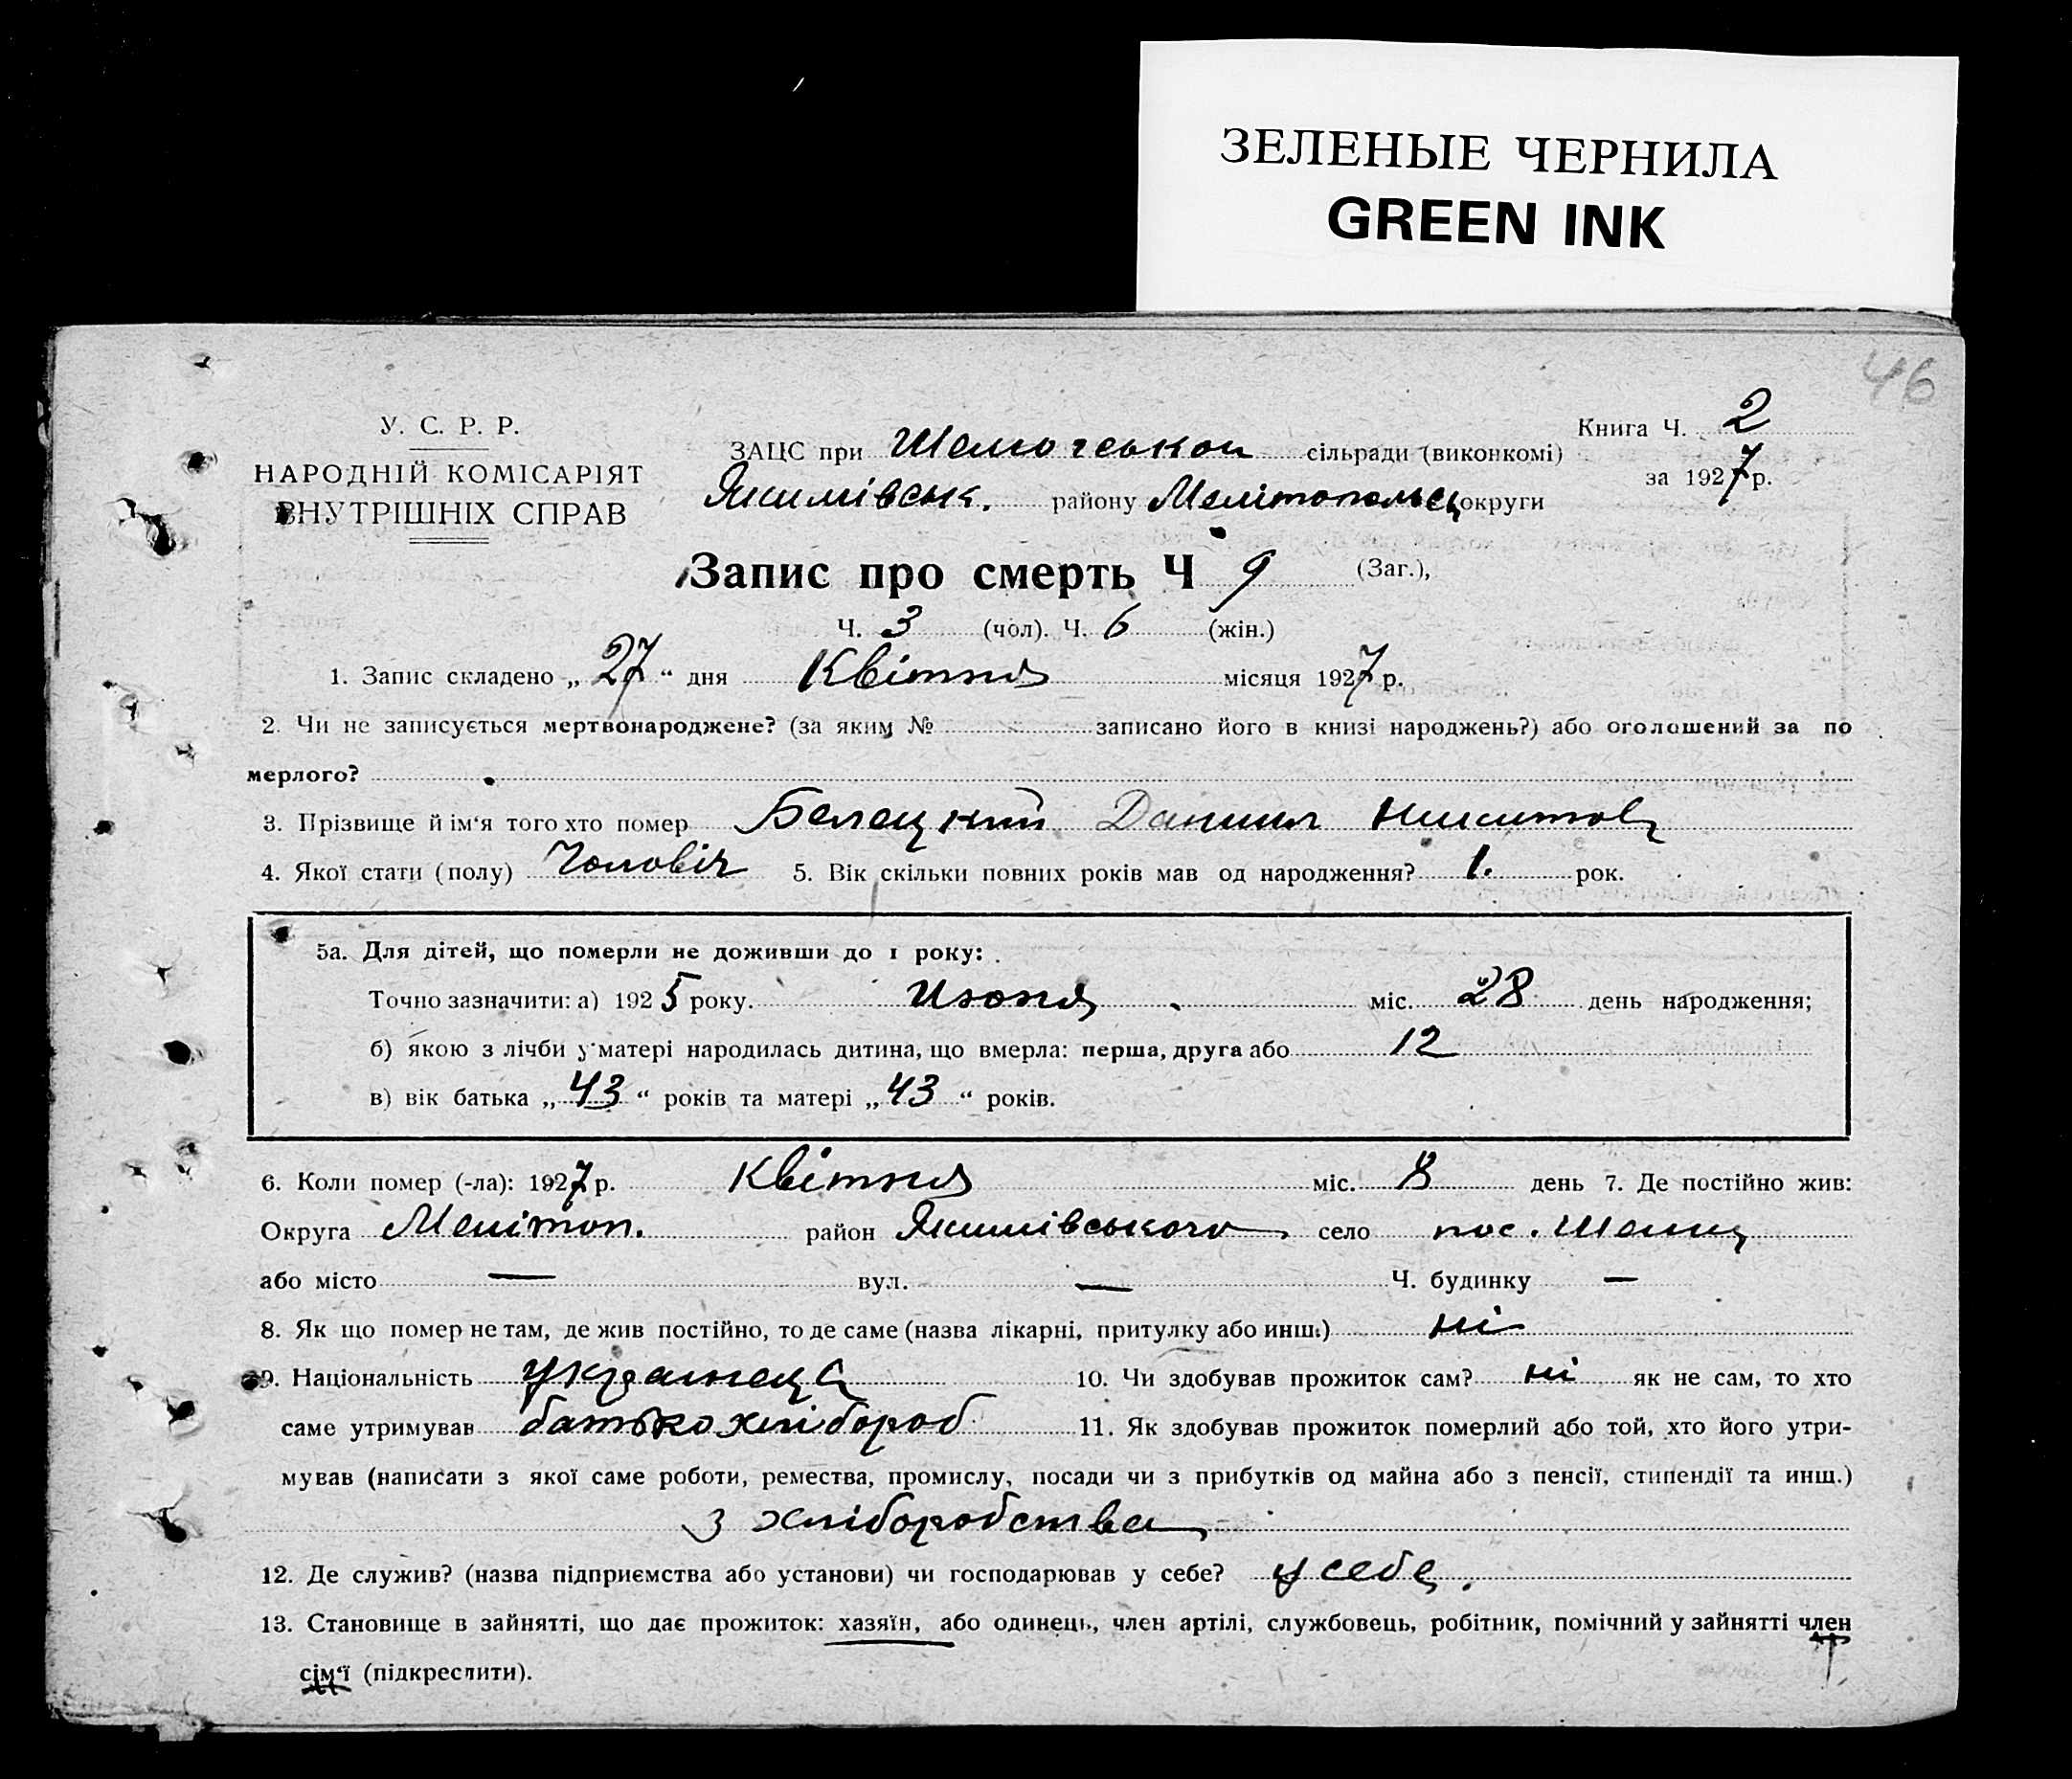 ЗЕЛЕНЫЕ ЧЕРНИЛА
GREEN INK
46
У. С. Р. Р.
НАРОДНІЙ КОМІСАРІЯТ
ВНУТРІШНІХ СПРАВ
Книга Ч. 2
за 1927 р.
ЗАЦС при сільради (виконкомі)
Якимівськ. району Мелітопольськ округи
Запис про смерть Ч 9 (Заг.),
Ч. 3 (чол). Ч. 6 (жін.)
1. Запис складено „ 27 “ дня Квітня місяця 1927 р.
2. Чи не записується мертвонароджене? (за яким № записано його в книзі народжень?) або оголошений за по
мерлого?
3. Прізвище й ім‘я того хто помер Белецкий Даниил Никитов
4. Якої стати (полу) Чоловіч 5. Вік скільки повних років мав од народження? 1. рок.
5а. Для дітей, що померли не доживши до 1 року:
Точно зазначити: а) 1925 року. Июня міс. 28 день народження;
б) якою з лічби у матері народилась дитина, що вмерла: перша, друга або 12
в) вік батька „ 43 “ років та матері „ 43 “ років.
6. Коли помер (-ла): 1927 р. Квітня міс. 8 день 7. Де постійно жив:
Округа Мелітоп. район Якимівського село пос.
або місто — вул. — Ч. будинку —
8. Як що помер не там, де жив постійно, то де саме (назва лікарні, притулку або инш.) ні
9. Національність 10. Чи здобував прожиток сам? ні як не сам, то хто
саме утримував батько хлібороб 11. Як здобував прожиток померлий або той, хто його утри-
мував (написати з якої саме роботи, ремества, промислу, посади чи з прибутків од майна або з пенсії, стипендії та инш.)
з хліборобства
12. Де служив? (назва підприємства або установи) чи господарював у себе? у себе.
13. Становище в зайнятті, що дає прожиток: хазяїн, або одинець, член артілі, службовець, робітник, помічний у зайнятті член
сім‘ї (підкреслити).